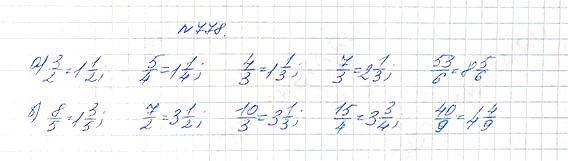 №778.
а) 3/2 = 1 1/2; 5/4 = 1 1/4; 4/3 = 1 1/3; 7/3 = 2 1/3; 53/6 = 8 5/6
б) 8/5 = 1 3/5; 7/2 = 3 1/2; 10/3 = 3 1/3; 15/4 = 3 3/4; 40/9 = 4 4/9